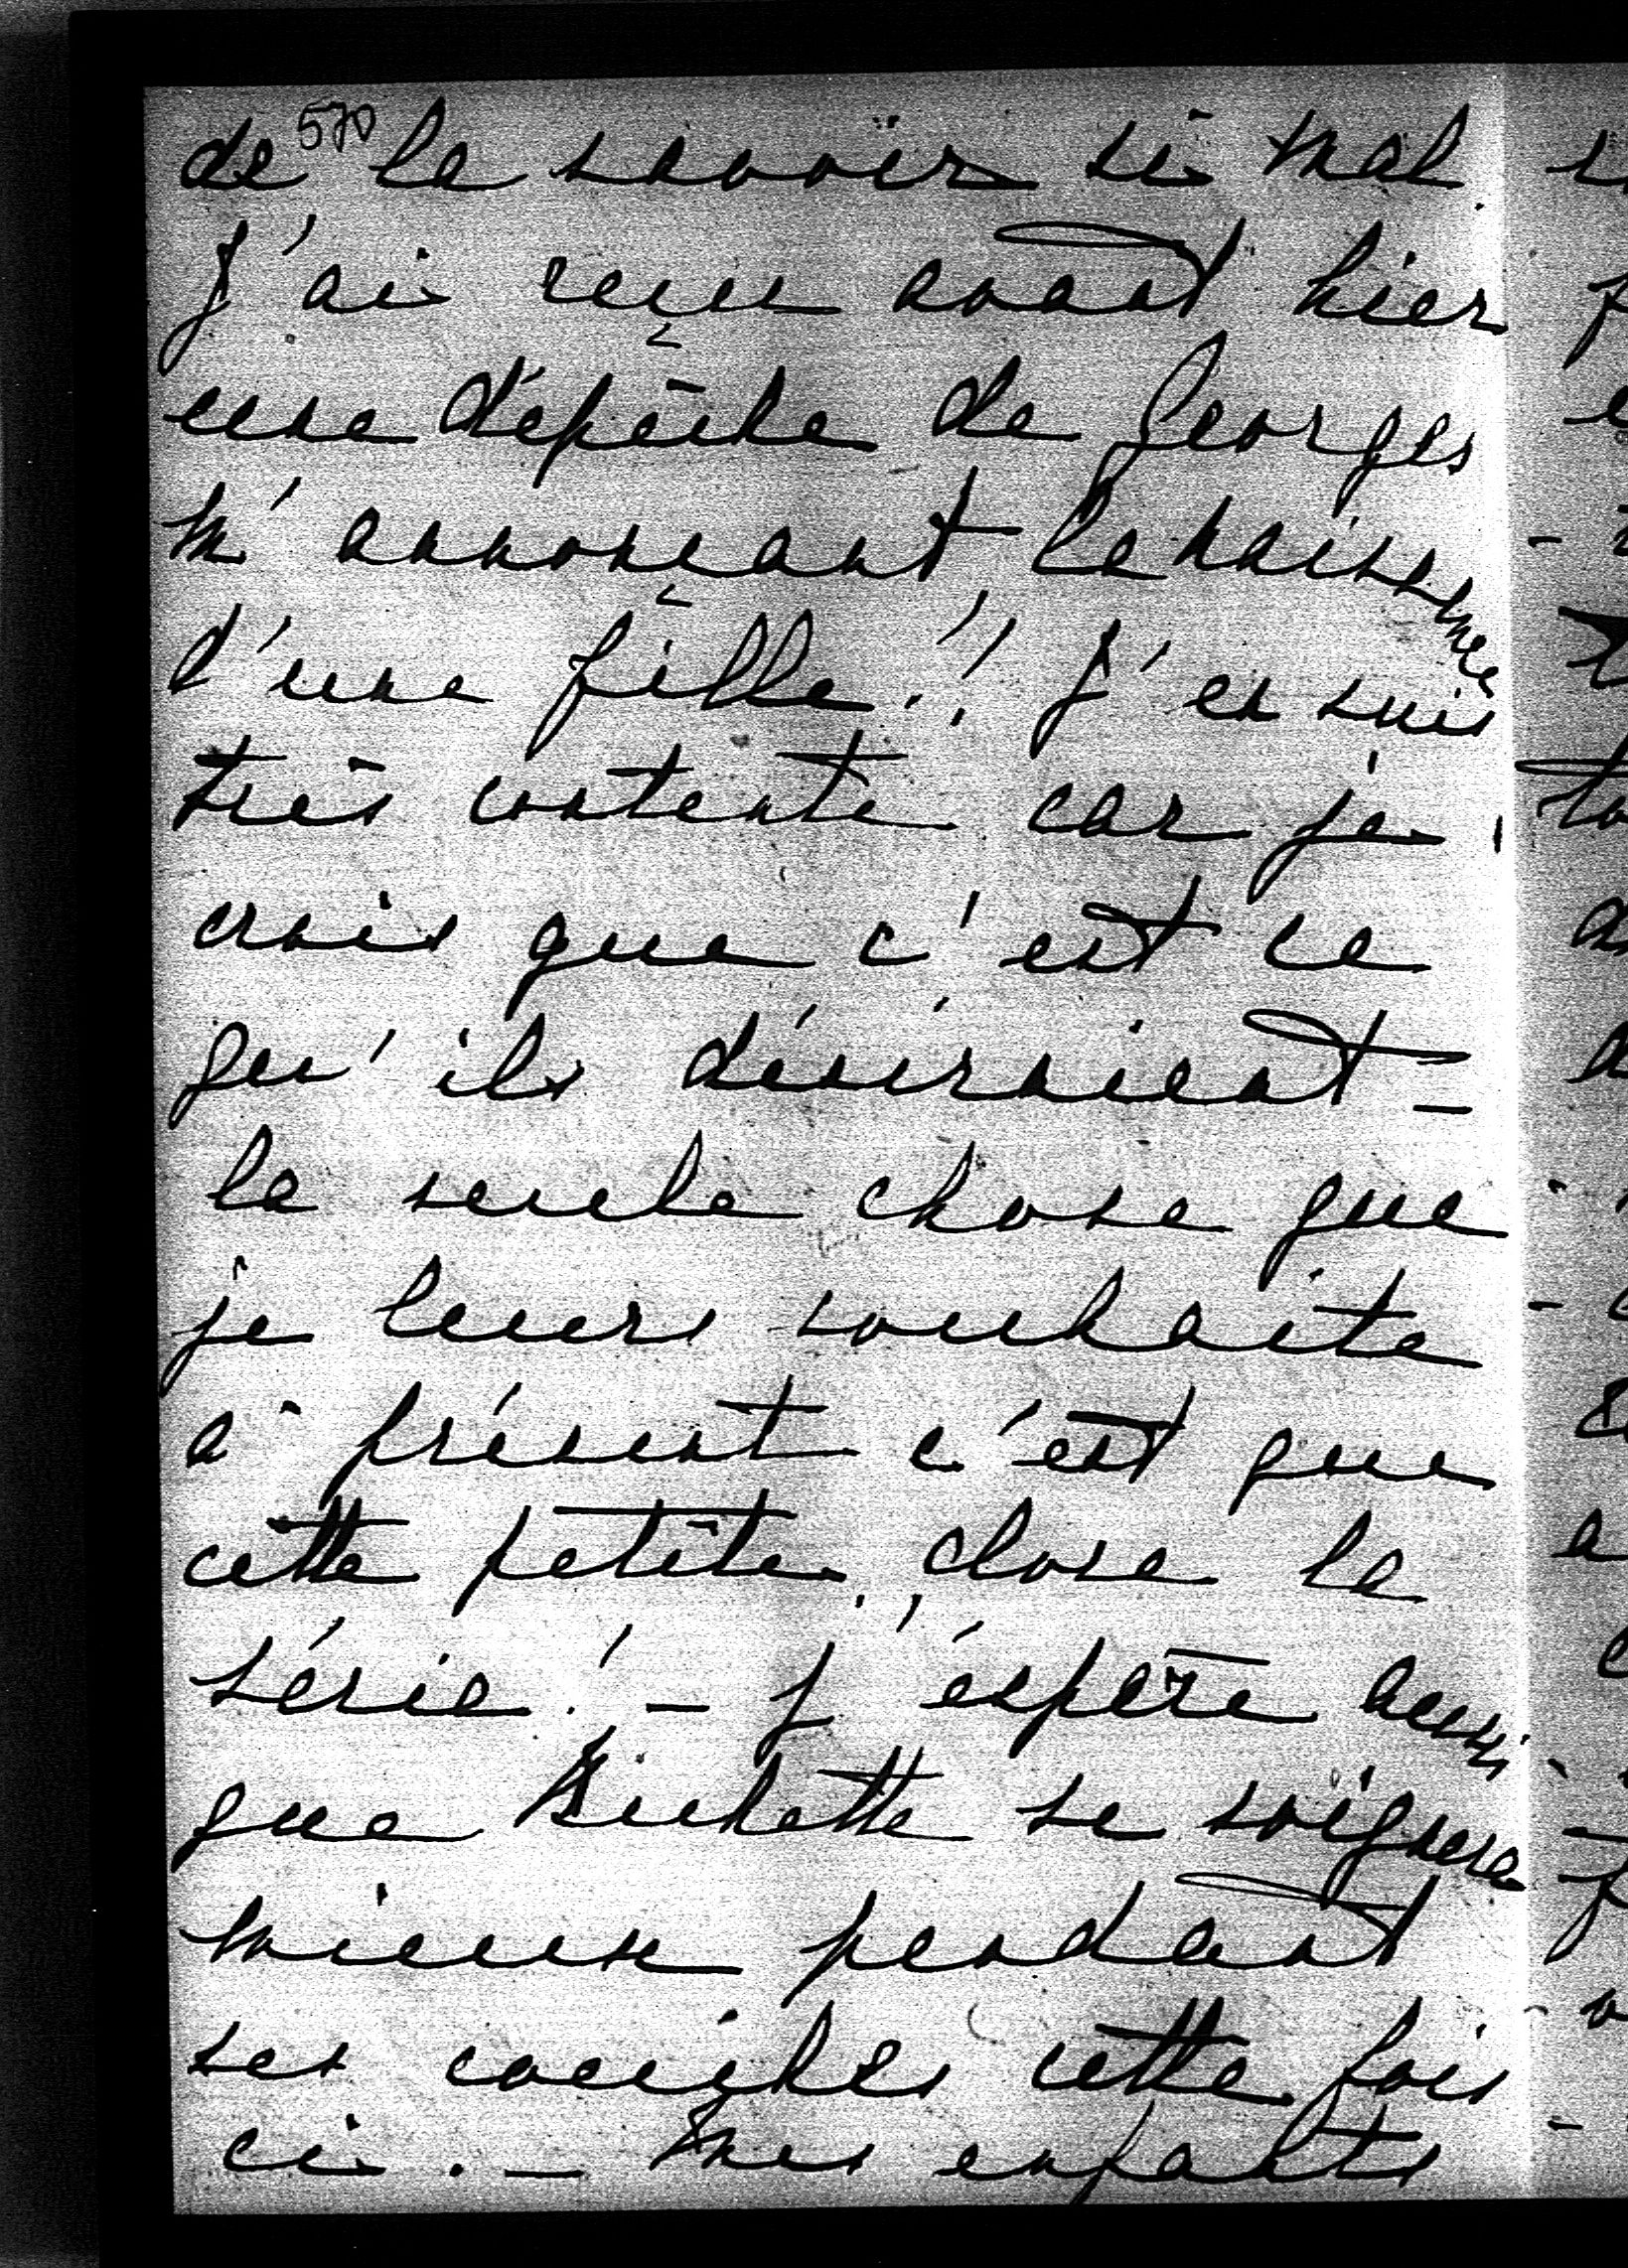 570
de le savoir si mal
J'ai reçu avant hier
une dépêche de Georges
m'annonçant la naissance
d'une fille!! J'en suis
très contente car je
crois que c'est ce
qu'ils désiraient =
la seule chose que
je leurs souhaite
à présent c'est que
cette petite close la
série! - J'éspère aussi
que se soignera
mieux pendant
ses couches cette fois
ci. - Mes enfants